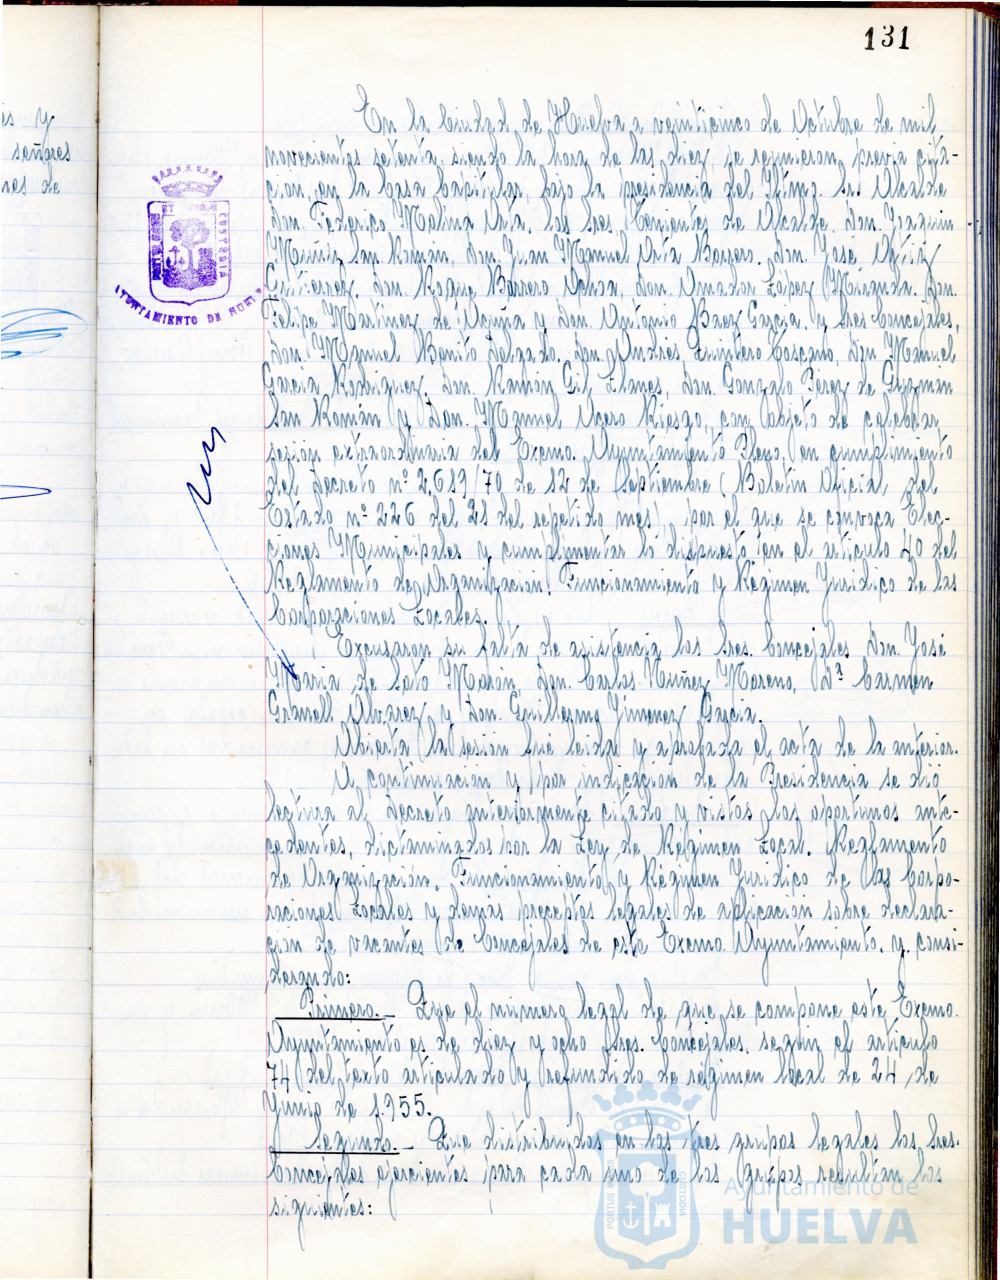 131
es y
señores
nes de
En la Ciudad de Huelva a veinticinco de Octubre de mil
novecientos setenta, siendo la hora de las diez, se reunieron previa cita-
ción, en la Casa Capitular, bajo la presidencia del Iltmo. Sr. Alcalde
Don Federico Molina Orta, los Sres. Tenientes de Alcalde, Don Joaquin
Muñiz San Román, Don Juan Manuel Orta Borrero, Don José Ortiz
Gutierrez, Don Roque Barrero Ochoa, Don Amador López Miranda, Don
Felipe Martinez de Acuña y Don Antonio Baez Garcia, y Sres Concejales,
Don Manuel Benito Salgado, Don Andrés Quintero Toscano, Don Manuel
Garcia Rodriguez, Don Ramón Gil Llanes, Don Gonzalo Pérez de Guzmán
San Román y Don Manuel Acero Riesgo, con objeto de celebrar
sesión extraordinaria del Excmo. Ayuntamiento Pleno, en cumplimiento
del Decreto nº 2.613/70 de 12 de Septiembre (Boletin Oficial del
Estado nº 226 del 21 del repetido mes), por el que se convoca Elec-
ciones Municipales y cumplimentar lo dispuesto en el articulo 40 del
Reglamento de Organización, Funcionamiento y Régimen Juridico de las
Corporaciones Locales.
Excusaron su falta de asistencia los Sres. Concejales Don José
Maria de Soto Morón, Don Carlos Núñez Moreno, Dª Carmen
Granell Alvarez y Don Guillermo Jimenez Garcia.
Abierta la sesión fue leida y aprobada el acta de la anterior.
A continuación y por indicación de la Presidencia se dió
lectura al Decreto anteriormente citado y vistos los oportunos ante-
cedentes, dictaminados por la Ley de Régimen Local, Reglamento
de Organización, Funcionamiento y Régimen Juridico de las Corpo-
raciones Locales y demás preceptos legales de aplicación sobre declara-
ción de vacantes de Concejales de este Excmo Ayuntamiento, y consi-
derando:
Primero.- Que el número legal de que se compone este Excmo.
Ayuntamiento es de diez y ocho Sres. Concejales, según el articulo
74 del texto articulado y refundido de régimen local de 24 de
Junio de 1.955.
Segundo.- Que distribuidos en los tres grupos legales los Sres.
Concejales ejercientes para cada uno de los grupos resultan los
siguientes:
AYUNTAMIENTO DE HUELVA
PORTUS MARIS
CUSTODIA
Ayuntamiento de
HUELVA